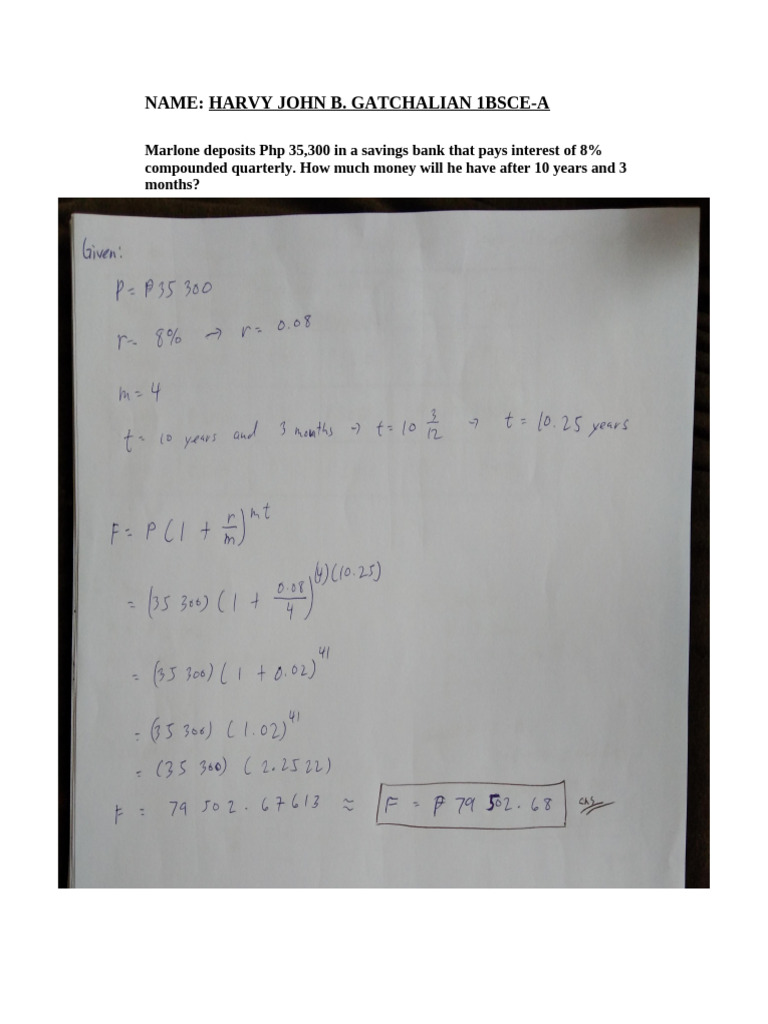 NAME: HARVY JOHN B. GATCHALIAN 1BSCE-A
Marlone deposits Php 35,300 in a savings bank that pays interest of 8%
compounded quarterly. How much money will he have after 10 years and 3
months?
Given:
P = ₱35 300
r = 8% → r = 0.08
m = 4
t = 10 years and 3 months → t = 10 3/12 → t = 10.25 years
F = P(1 + r/m)^mt
= (35 300)(1 + 0.08/4)^(4)(10.25)
= (35 300)(1 + 0.02)^41
= (35 300)(1.02)^41
= (35 300)(2.2522)
F = 79 502.67613 ≈ F = ₱ 79 502.68 ans